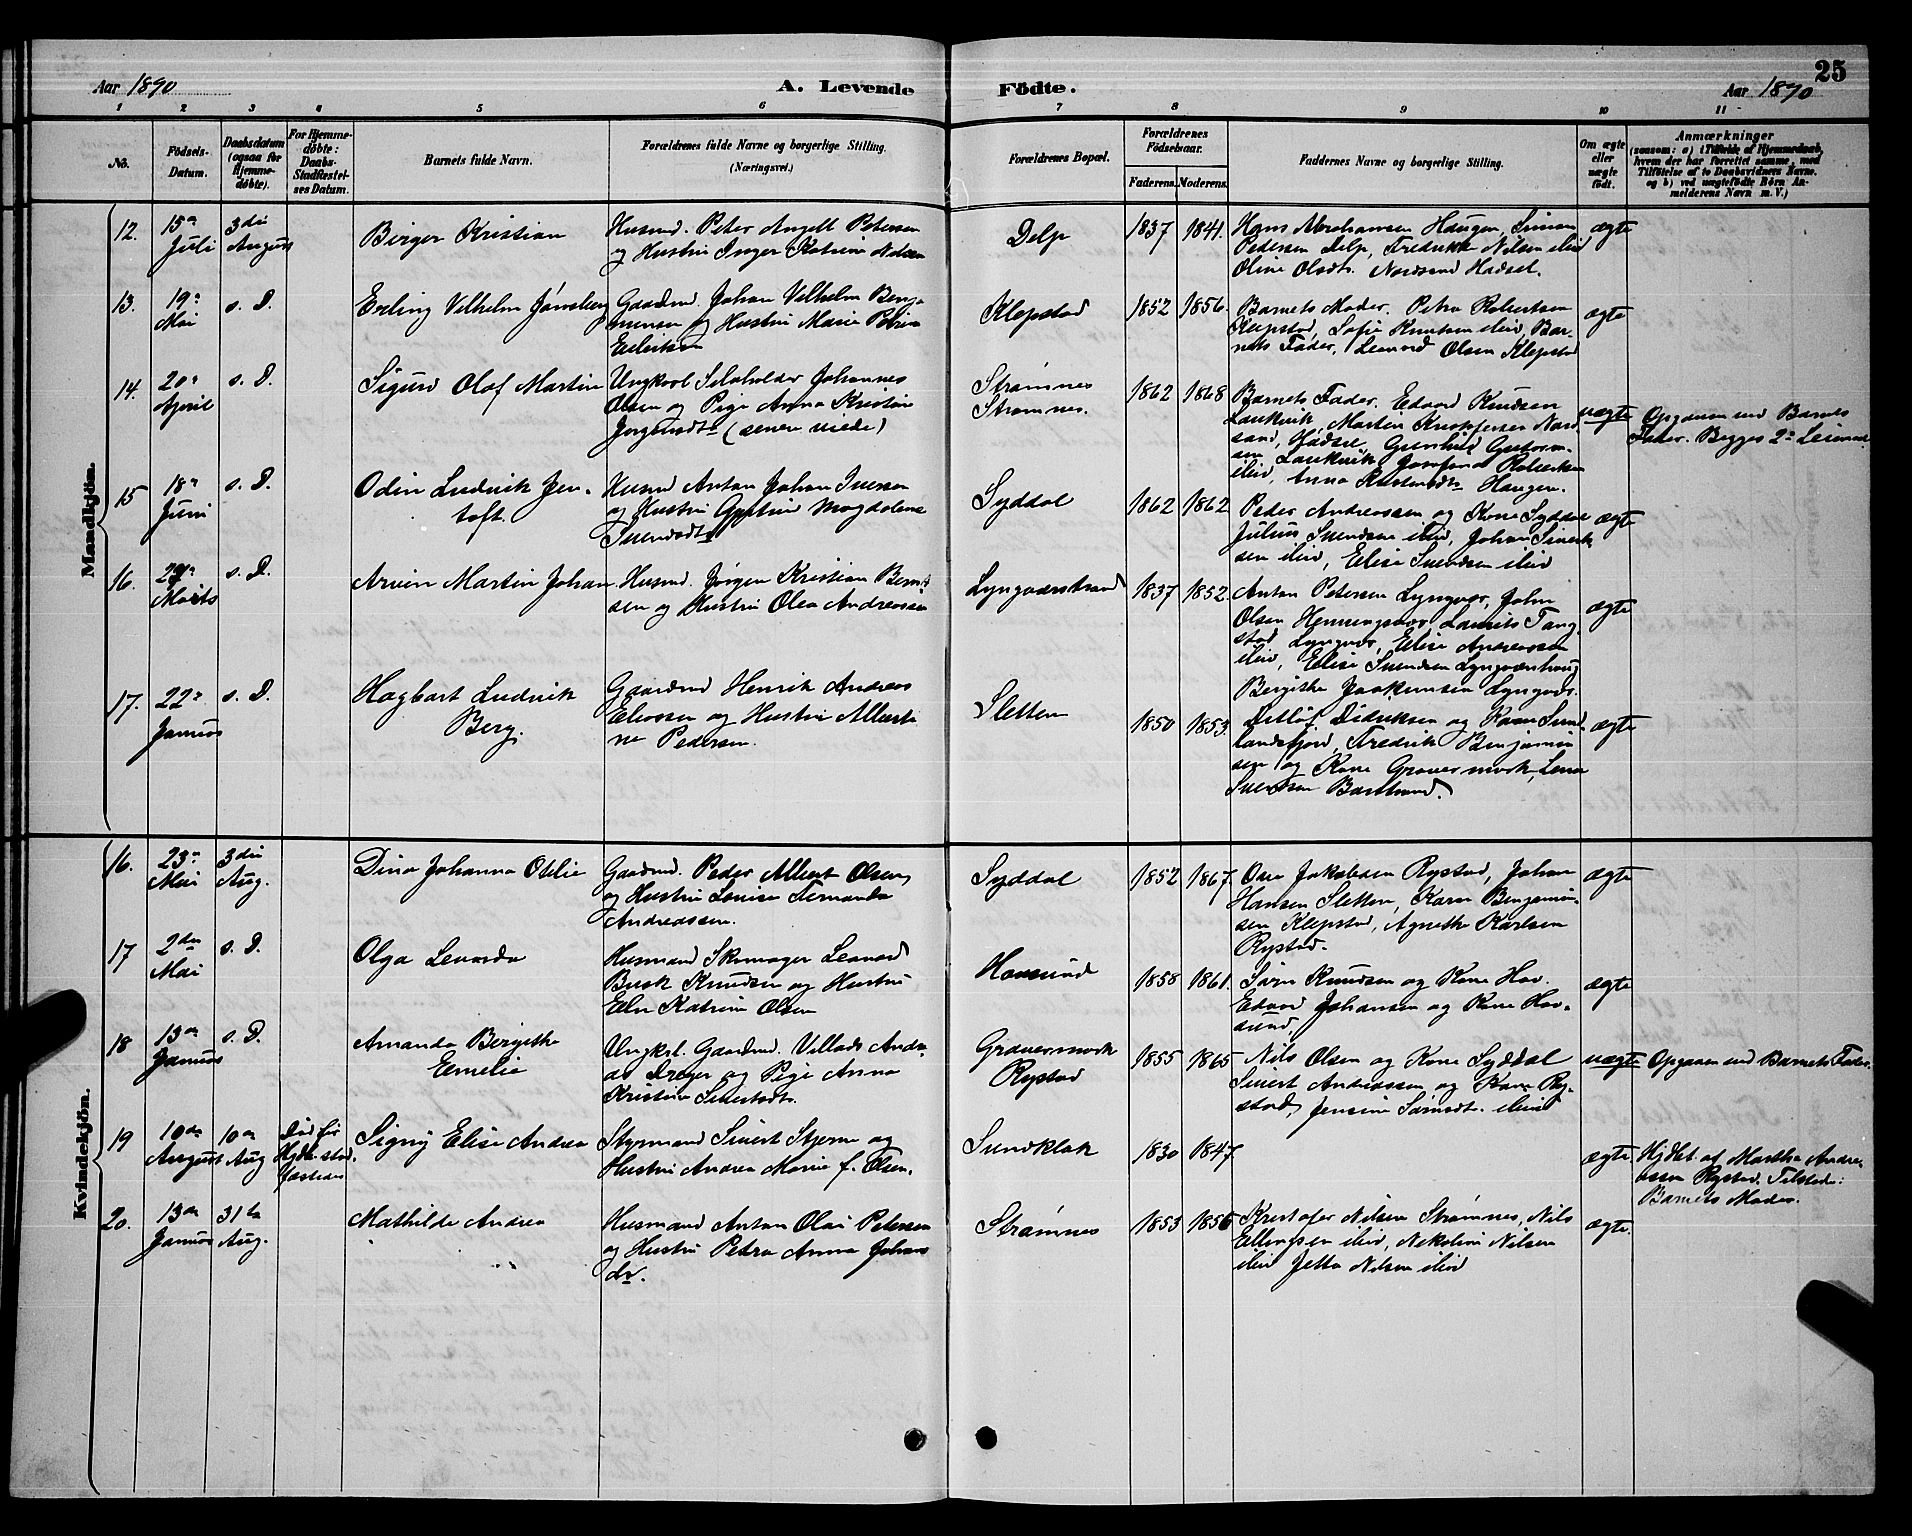 25
Aar 1890 A. Levende Födte. Aar 1890
1 2 3 4 5 6 7 8 9 10 11
No. Födsels-Datum. Daabsdatum (ogsaa for Hjemmedöbte). For Hjemmedöbte: Daabs-Stadfæstelses Datum. Barnets fulde Navn. Forældrenes fulde Navne og borgerlige Stilling. (Næringsvei.) Forældrenes Bopæl. Forældrenes Födselsaar. Faderens. Moderens. Faddernes Navne og borgerlige Stilling. Om ægte eller uægte födt. Anmærkninger (saasom: a) i Tilfælde af Hjemmedaab, hvem der har forrettet samme, med Tilföielse af to Daabsvidners Navne, og b) ved uægtefödte Börn Anmelderens Navn m. V.)
Mandkjön.
12. 15de Juli 3die August Birger Kristian
Husmd. Peter Angell Petersen
og Hustru Inger Katrine Nilsen
Delp 1837 1841.
Hans Abrahamsen Haugen, Simon
Pedersen Delp, Fredrikke Nilsen ibid
Oline Olsdt. Nordsand Hadsel.
ægte
13. 19de Mai s. D. Erling Vilhelm
Gaardmd. Johan Vilhelm Benja
minsen og Hustru Marie Petrine
Klepstad 1852 1856.
Barnets Moder. Petra Robertsen
Klepstad, Sofie Knutsen ibid, Bar-
nets Fader, Leonard Olsen Klepstad
ægte
14. 20de April s. D. Sigurd Olaf Martin
Ungkarl Johannes
Olsen og Pige Anna Kristine
Jørgensdtr (senere viede)
Strømnes
Strømnes.
1862 1868
Barnets Fader. Edvard Knudsen
Laukvik, Marten Kristofersen Nord
sand, Hadsel, Gunhild
sen Laukvik
ibid, Anna Haugen.
uægte
Opgaven ved Barnets
Fader. Begges 2de Leiermaal
15 18de Juni s. D. Odin Ludvik Jen-
toft.
Husmd Anton Johan Iversen
og Hustru Magdalena
Svendsdtr
Syddal 1862 1862
Peder Andreassen og Kone Syddal
Julius Svendsen ibid, Johan Sivert
sen ibid, Elise Svendsen ibid
ægte
16. Marts s. D. Arvin Martin Johan
Husmd. Jørgen Kristian Bernt
sen og Hustru Olea Andreassen
Lyngværstrand 1837 1852.
Anton Petersen Lyngvær, John
Olsen Henningsvær, Laurits Tang
stad Lyngvær, Elise Andreassen
ibid, Elise Svendsen
Bergithe Joakimsen Lyngvær.
ægte
17. 22de Januar s. D. Hagbart Ludvik
Berg.
Gaardmd Henrik Andreas
Eliassen og Hustru Alberti
ne Pedersen.
Sletten 1850 1853.
Ditlef Didriksen og Kone Sund
landsfjord, Fredrik Benjamin
sen og Kone Gravermark, Lena
Svendsen
ægte
Kvindekjön.
16. 23de Mai 3die Aug. Dina Johanna Otelie
Gaardmd. Peder Albert Olsen
og Hustru Lovise Fernanda
Andreassen.
Syddal 1852 1867.
Ose Jakobsen Rystad, Johan
Hansen Sletten, Karen Benjamin-
sen Klepstad, Agnethe Karlsen
Rystad.
ægte
17 2den Mai s. D. Olga Lenarda
Husmand Skomager Leonard
Busk Knudsen og Hustru
Katrine Olsen
Hovsund 1858 1861.
Søren Knudsen og Kone Hov.
Edvard Johansen og Kone Hov-
sund,
ægte
18 13de Januar s. D. Amanda Bergithe
Emelie
Ungkrl. Gaardmd. Villads Andre
as Dreyer og Pige Anna
Kristine Sivertsdtr.
Gravermark
Rystad
1855 1865
Nils Olsen og Kone Syddal
Sivert Andreassen og Kone Ry-
stad, Jensine Sørensdt. ibid
uægte
Opgaven ved Barnets Fader.
19 10de August 10de Aug Død før
Hjdb. stad
fæstelsen
Signy Elise Andrea
Styrmand Sivert Stjerne og
Hustru Andrea Marie f. Olsen.
Sundklak 1830 1847
ægte.
Hjdbt. af Martha Andre-
assen Rystad. Tilstede:
Barnets Moder.
20. 13de Januar 31te Aug. Mathilde Andrea
Husmand Anton Olai Petersen
og Hustru Petra Anna Johans
dr.
Strømnes 1853 1856
Kristofer Nilsen Strømnes, Nils
Ellingsen ibid, Nikoline Nilsen
ibid Jetta Nilsen ibid
ægte.